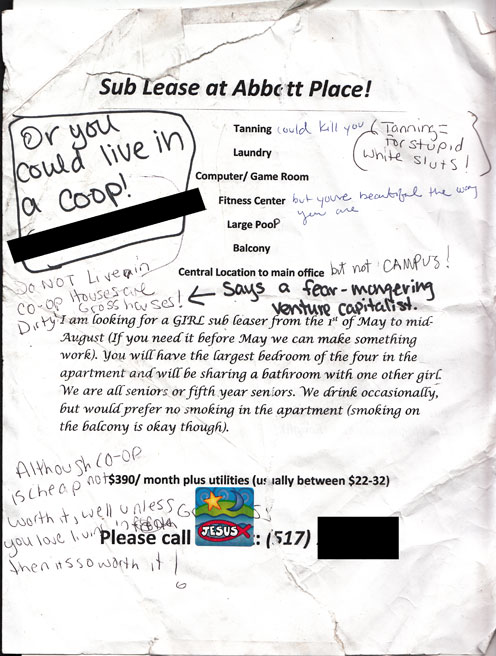 Sub Lease at Abbott Place!
Or you
could live in
a coop!
Tanning could kill you (Tanning =
for stupid
white sluts!)
Laundry
Computer/ Game Room
Fitness Center but you're beautiful the way
you are
Large PooP
Balcony
Central Location to main office but not CAMPUS!
Do NOT Live in
co-op Houses are
Dirty Gross houses!
← Says a fear-mongering
venture capitalist.
I am looking for a GIRL sub leaser from the 1st of May to mid-
August (If you need it before May we can make something
work). You will have the largest bedroom of the four in the
apartment and will be sharing a bathroom with one other girl.
We are all seniors or fifth year seniors. We drink occasionally,
but would prefer no smoking in the apartment (smoking on
the balcony is okay though).
Although co-op
is cheap not
worth it, well unless
you love living in
then its so worth it!
$390/ month plus utilities (usually between $22-32)
JESUS
Please call : (517)